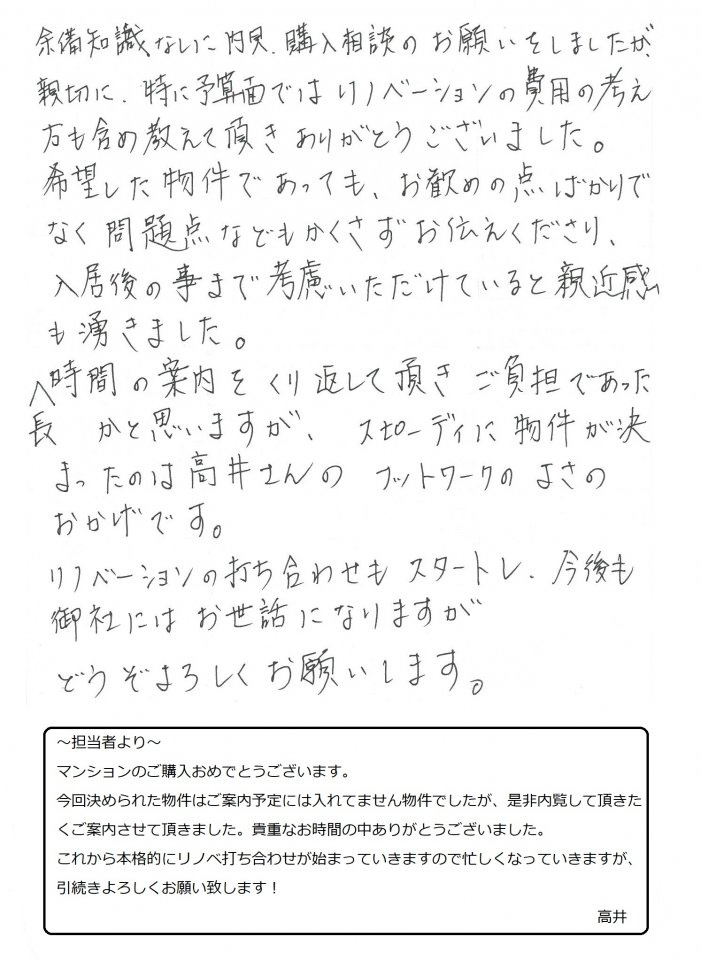 余備知識なしに内見、購入相談のお願いをしましたが、
親切に、特に予算面ではリノベーションの費用の考え
方も含め教えて頂きありがとうございました。
希望した物件であっても、お歓めの点ばかりで
なく問題点などもかくさずお伝えくださり、
入居後の事まで考慮いただけていると親近感
も湧きました。
長時間の案内をくり返して頂きご負担であった
かと思いますが、スピーディに物件が決
まったのは高井さんのフットワークのよさの
おかげです。
リノベーションの打ち合わせもスタートし、今後も
御社にはお世話になりますが
どうぞよろしくお願いします。
～担当者より～
マンションのご購入おめでとうございます。
今回決められた物件はご案内予定には入れてません物件でしたが、是非内覧して頂きた
くご案内させて頂きました。貴重なお時間の中ありがとうございました。
これから本格的にリノベ打ち合わせが始まっていきますので忙しくなっていきますが、
引続きよろしくお願い致します！
高井